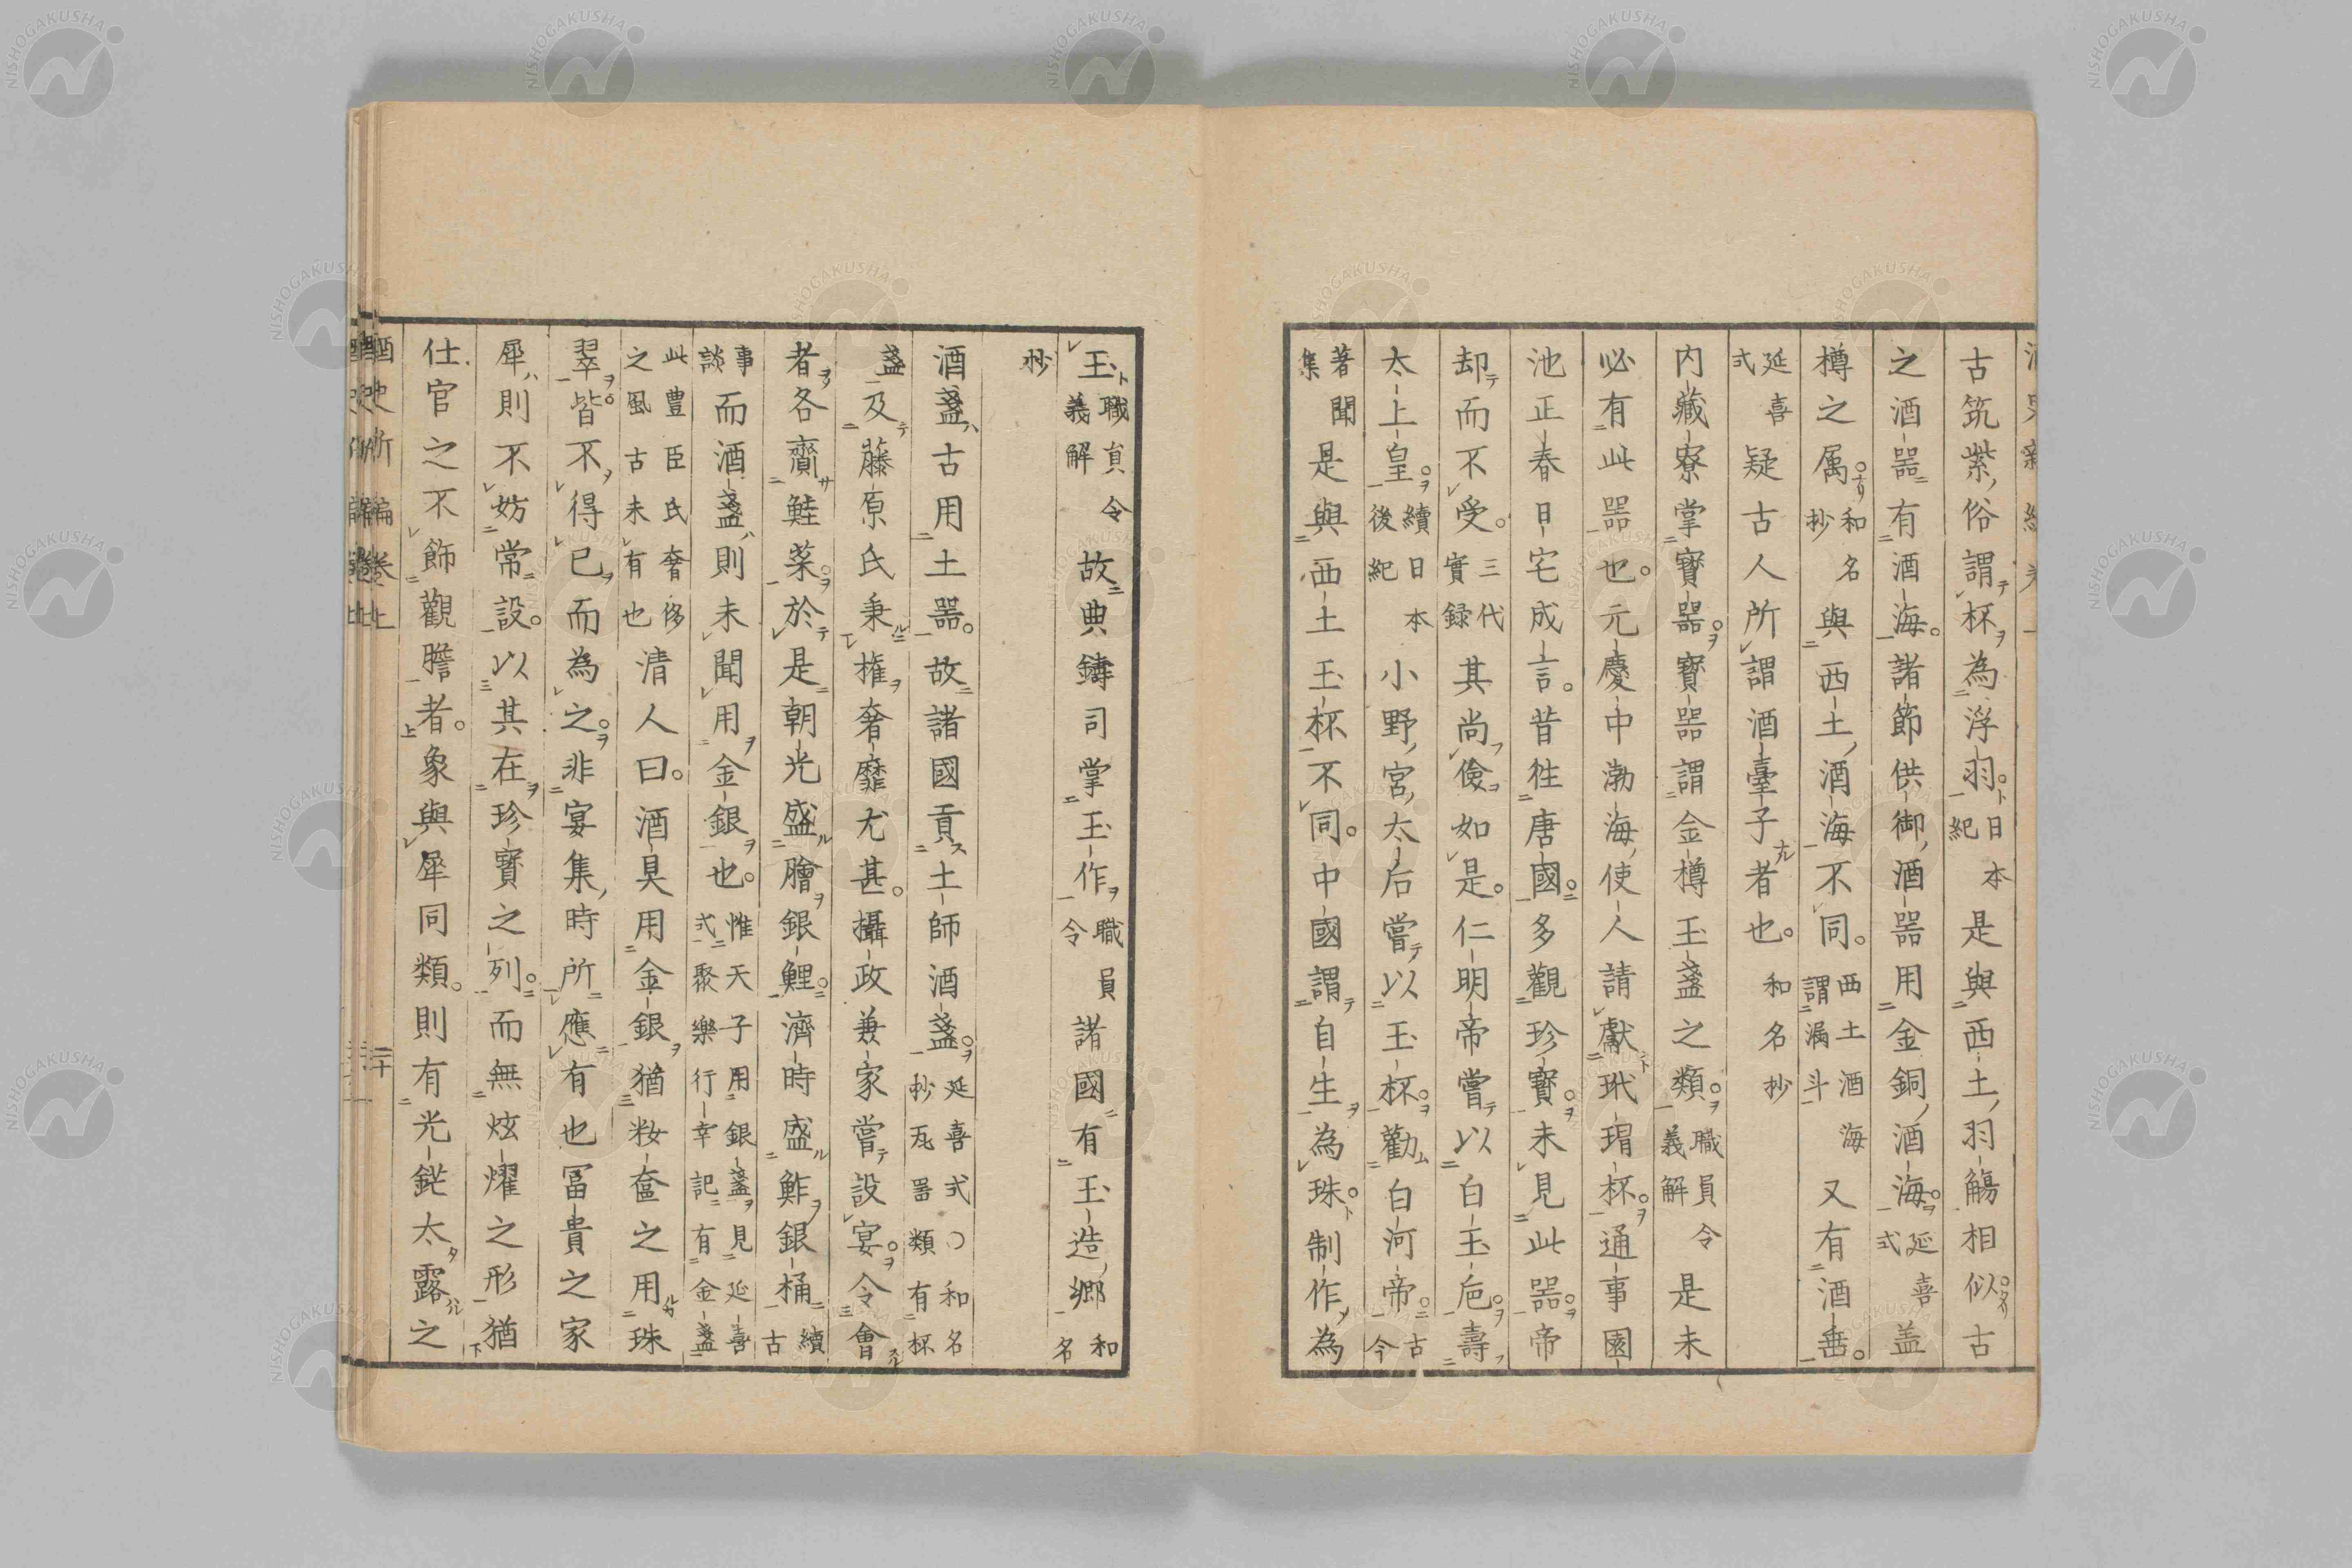 古筑紫俗謂杯為浮羽日本紀是與西土羽觴相似古
之酒器有酒海諸節供御酒器用金銅酒海延喜式盖
樽之属和名抄與西土酒海不同西土酒海謂漏斗又有酒垂
延喜式疑古人所謂酒臺子者也和名抄
内藏寮掌寶器寶器謂金樽玉盞之類職員令義解是未
必有此器也元慶中渤海使人請獻玳瑁杯通事園
池正春日宅成言昔往唐國多觀珍寶未見此器帝
却而不受三代實録其尚儉如是仁明帝嘗以白玉巵壽
太上皇續日本後紀小野宮太后嘗以玉杯勸白河帝古今
著聞集是與西土玉杯不同中國謂自生為珠制作為
玉職員令義解故典鑄司掌玉作職員令諸國有玉造郷和名
抄
酒盞古用土器故諸國貢土師酒盞延喜式○和名抄瓦器類有杯
盞及藤原氏秉權奢靡尤甚攝政兼家嘗設宴令會
者各齎鮭菜於是朝光盛膾銀鯉濟時盛鮓銀桶續古
事談而酒盞則未聞用金銀也惟天子用銀盞見延喜式聚樂行幸記有金盞
此豊臣氏奢侈之風古未有也清人曰酒具用金銀猶粧奩之用珠
翠皆不得已而為之非宴集時所應有也冨貴之家
犀則不妨常設以其在珍寶之列而無炫燿之形猶
仕官之不飾觀膽者象與犀同類則有光鋩太露之
酒史新編卷上
二十